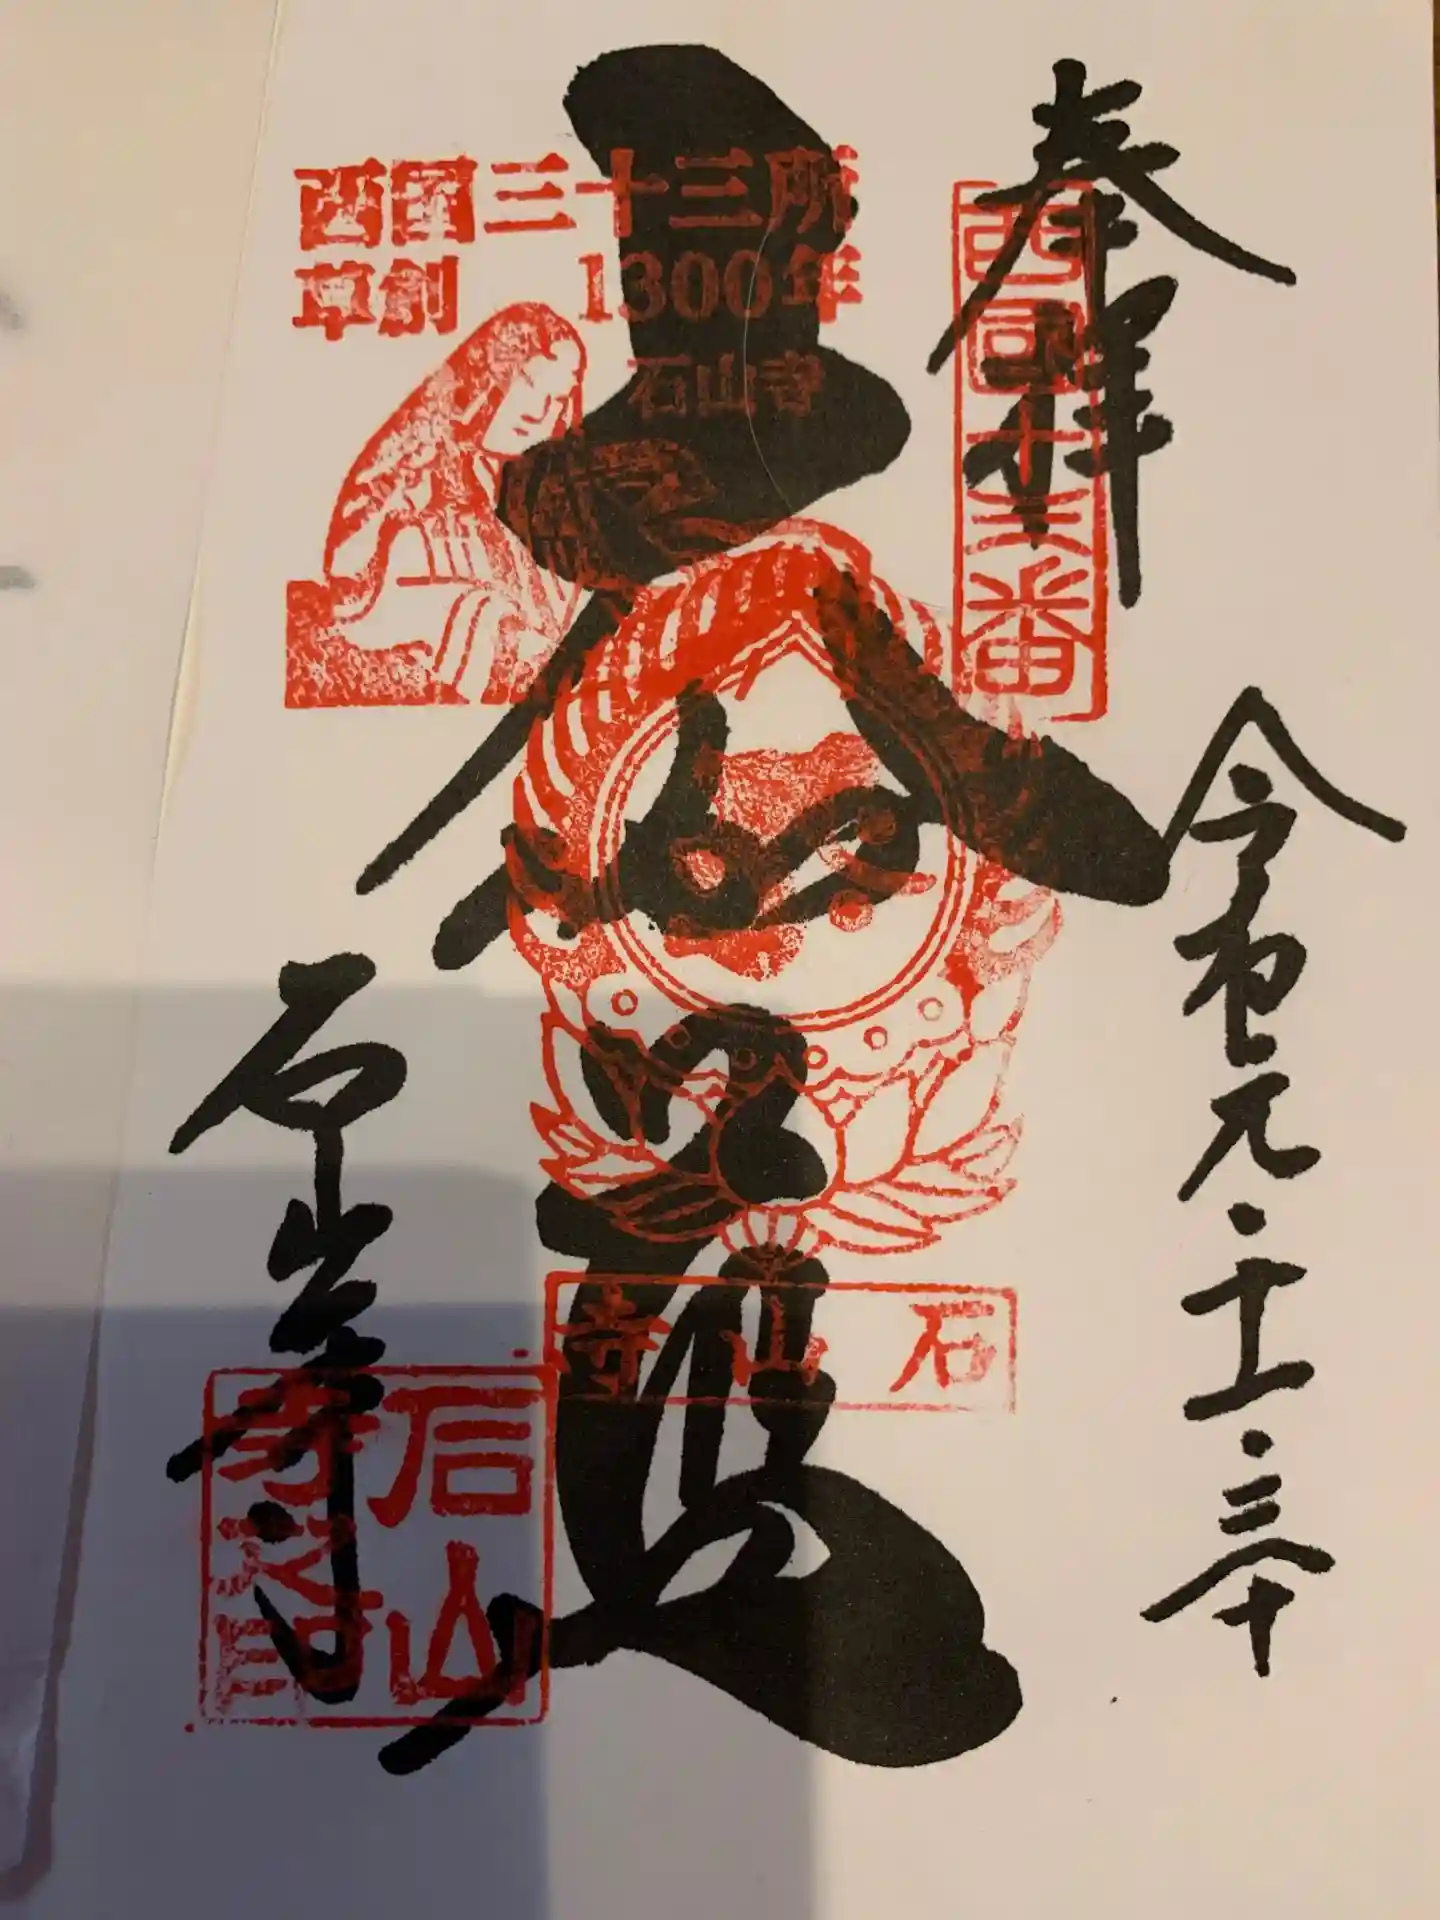 奉拝
西国十三番
令和元・十一・三十
西国三十三所
草創 1300年
石山寺
石山寺
石山寺
石山寺之印